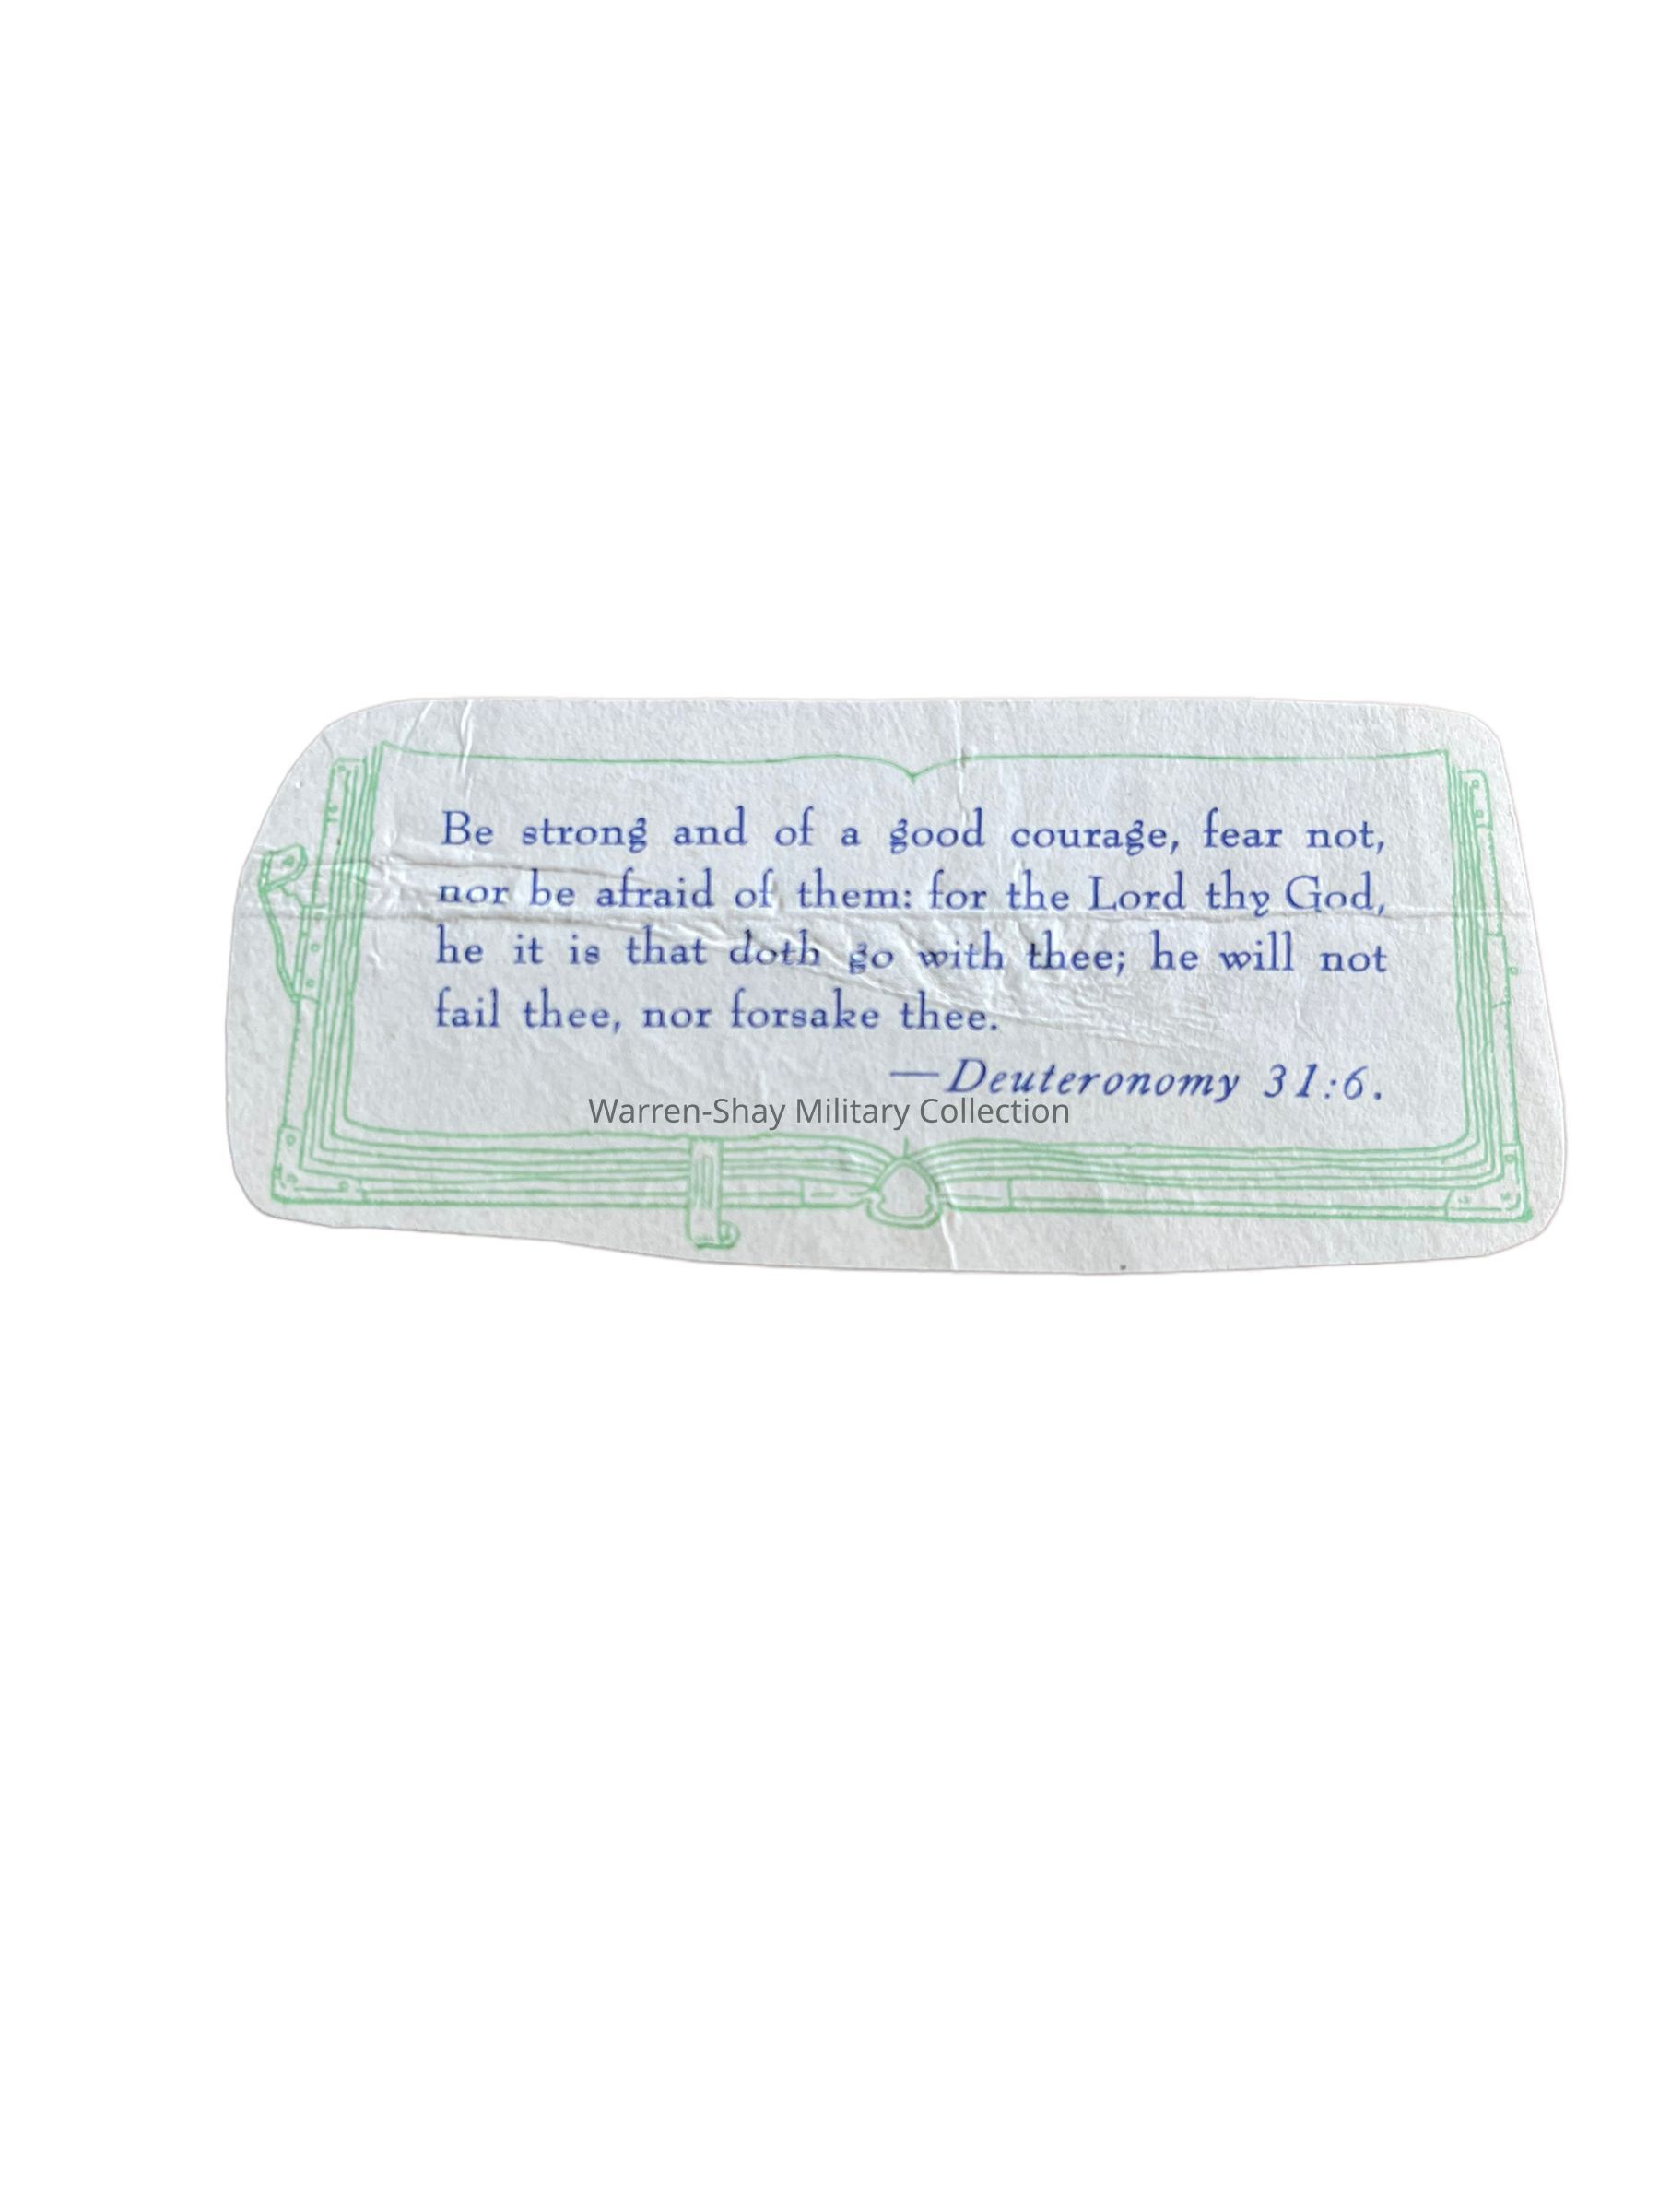 Be strong and of a good courage, fear not,
nor be afraid of them: for the Lord thy God,
he it is that doth go with thee; he will not
fail thee, nor forsake thee.
—Deuteronomy 31:6.
Warren-Shay Military Collection